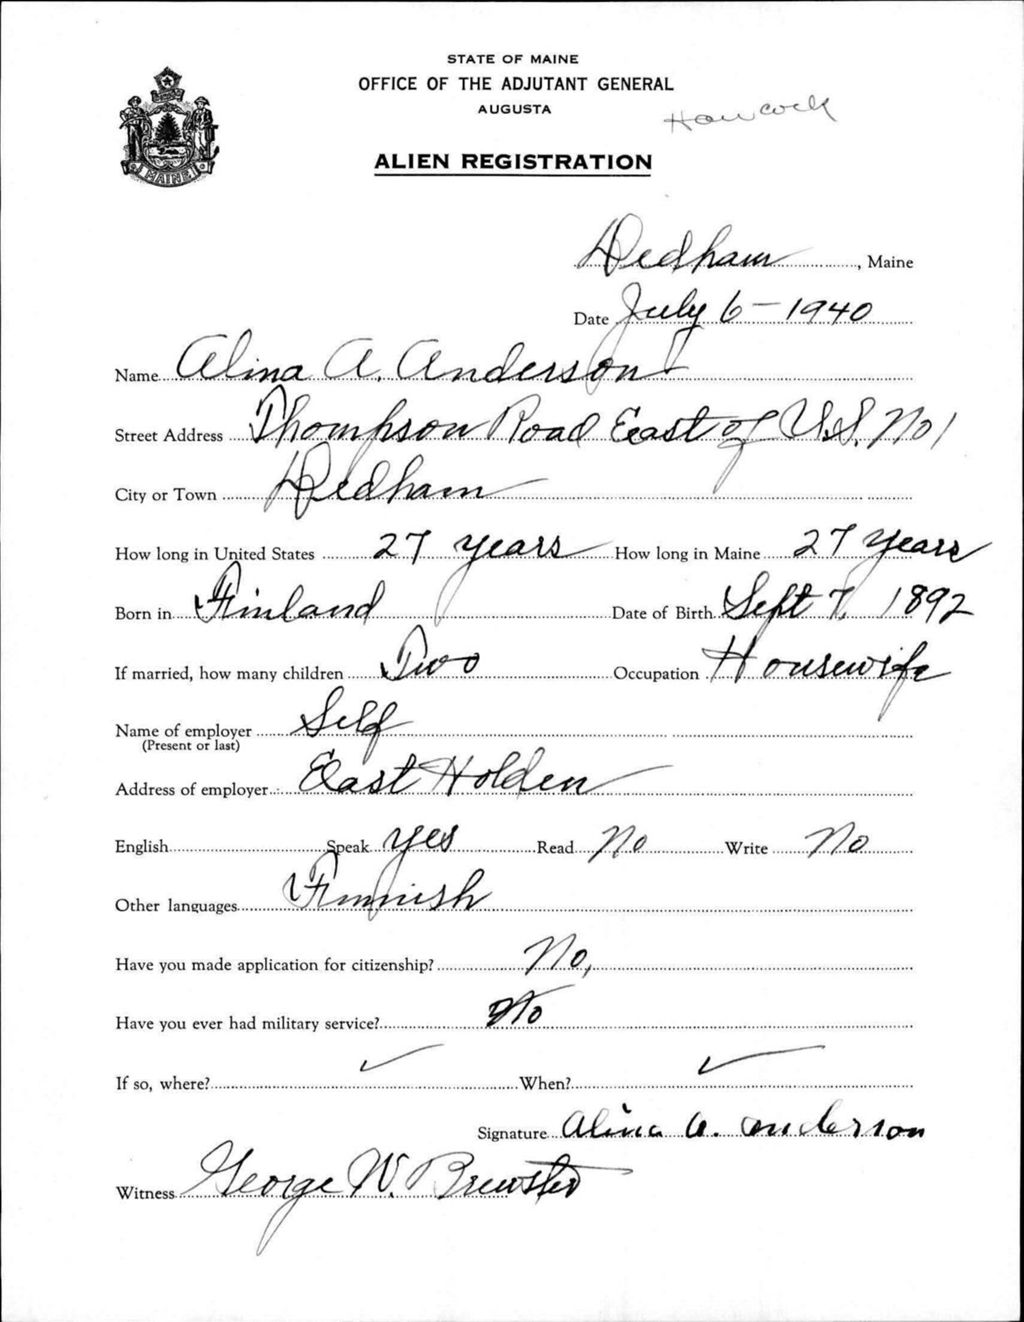 STATE OF MAINE
OFFICE OF THE ADJUTANT GENERAL
AUGUSTA
Hancock
ALIEN REGISTRATION
MAINE
Dedham, Maine
Date July 6-1940
Name Alina A. Anderson
Street Address Thompson Road East of U.S. No 1
City or Town Dedham
How long in United States 27 years How long in Maine 27 years
Born in Finland Date of Birth Sept 7, 1892
If married, how many children Two Occupation Housewife
Name of employer Self
(Present or last)
Address of employer East Holden
English Speak yes Read No Write No
Other languages Finnish
Have you made application for citizenship? No,
Have you ever had military service? No
If so, where? ✓ When? ✓
Signature Alina A. Anderson
Witness George W. Brewster